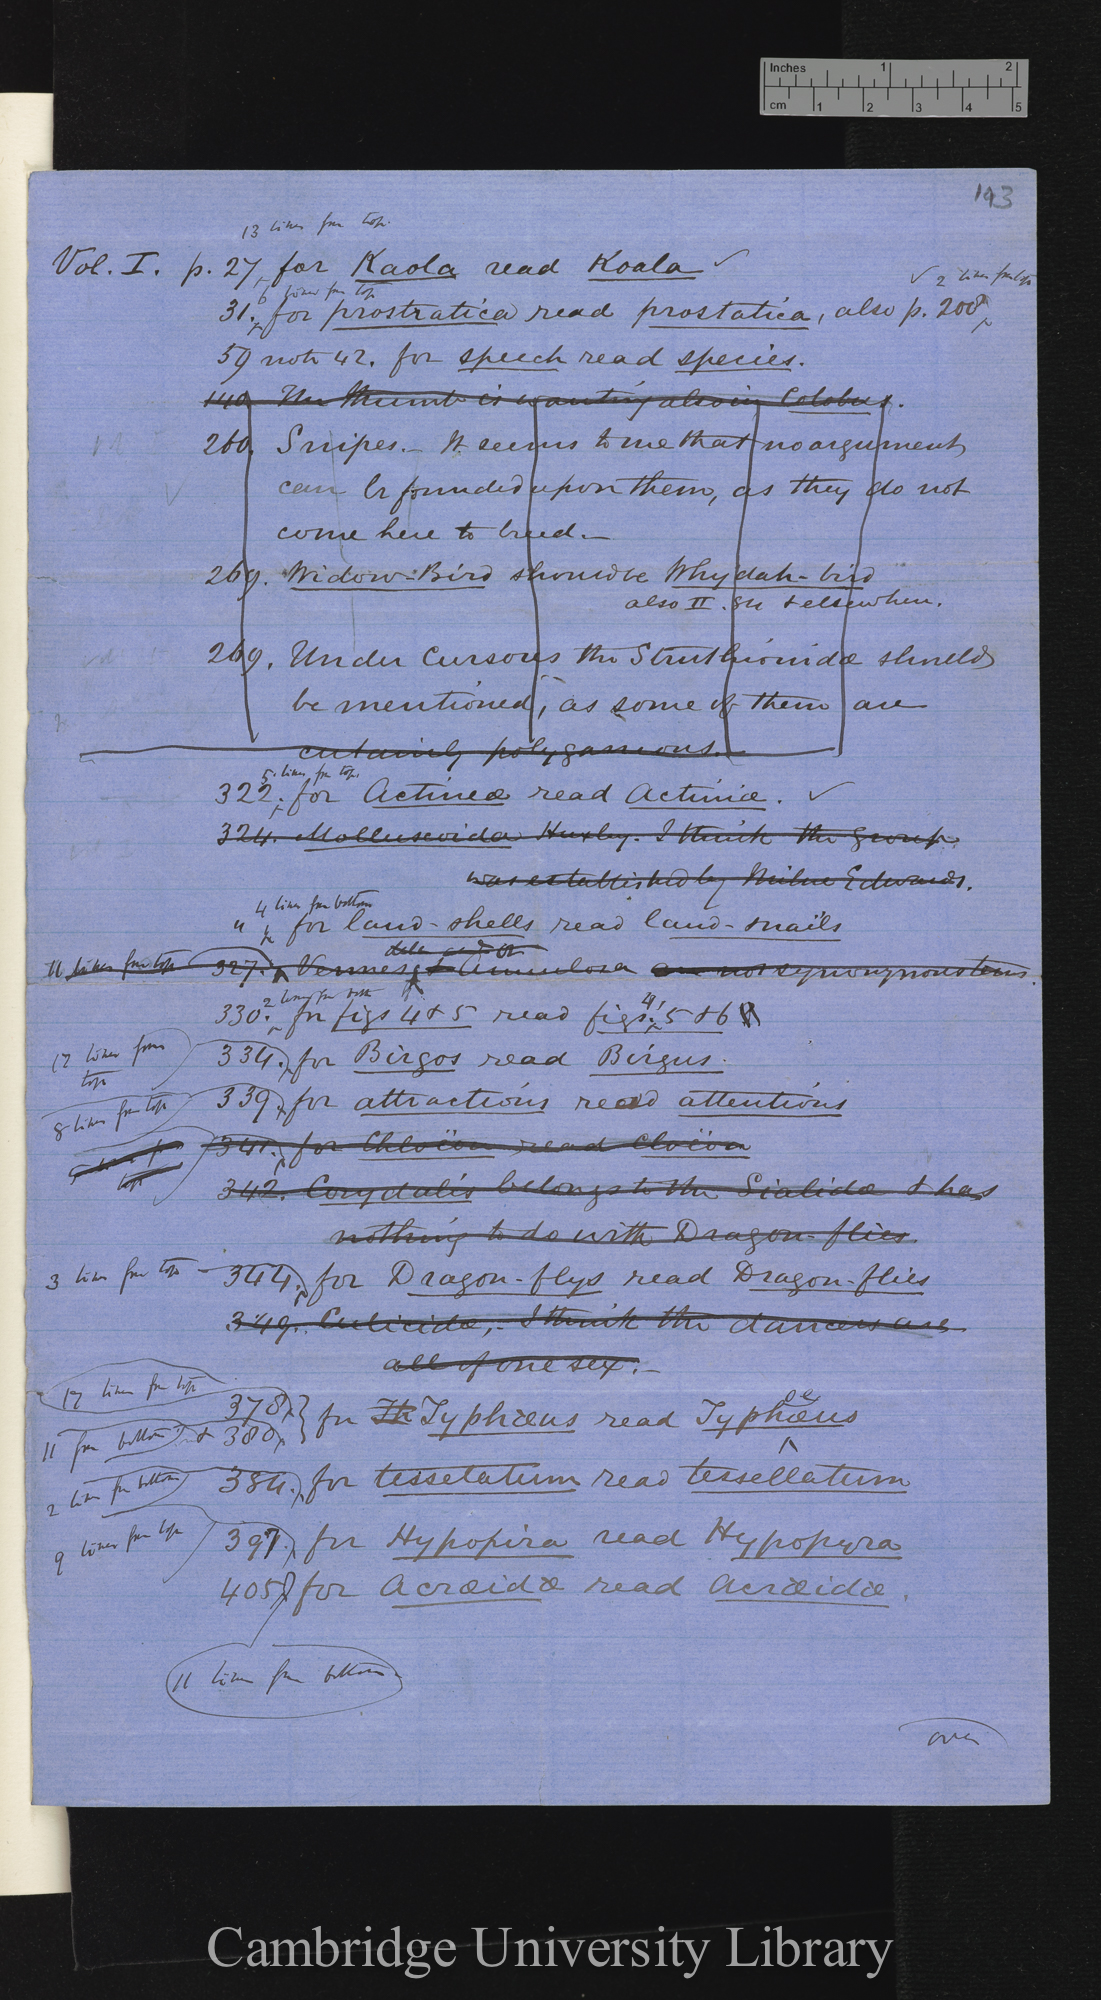 Inches 1 2
cm 1 2 3 4 5
143
13 lines from top.
Vol. I. p. 27, for Kaola read Koala ✓
6 lines from top
✓ 2 lines from top
31. for prostratica read prostatica, also p. 208
59 note 42. for speech read species.
140. The thumb is wanting also in Colobus.
260. Snipes.- It seems to me that no argument
can be founded upon them, as they do not
come here to breed.-
269. Widow-Bird should be Whydah-bird
also II. 84 & elsewhere.
269. Under Cursores the Struthionidæ should
be mentioned, as some of them are
certainly polygamous.-
5. lines from top.
322. for Actineæ read Actiniæ. ✓
324. Molluscoida Huxley. I think the group
was established by Milne Edwards.
4 lines from bottom
" for land-shells read land-snails
dele and or
11 lines from top 327. Vermes & Annulosa are not synonymous terms.
2 lines from bott
330. for figs 4 & 5 read figs. 4, 5 & 6
17 lines from top
334. for Birgos read Birgus.
8 lines from top
339. for attractions read attentions
top
341. for Chloëon read Cloëon
342. Corydalis belongs to the Sialidæ & has
nothing to do with Dragon-flies.
3 lines from top - 344. for Dragon-flys read Dragon-flies
349. Culicidæ, I think the dancers are
all of one sex.-
17 lines from top 378.
11 from bottom & 380. } for Th Typhæus read Typhœus
oe
2 lines from bottom 384. for tesselatum read tessellatum
9 lines from top 397. for Hypopira read Hypopyra
405 for Acræidæ read Acræidæ.
11 lines from bottom
over
Cambridge University Library